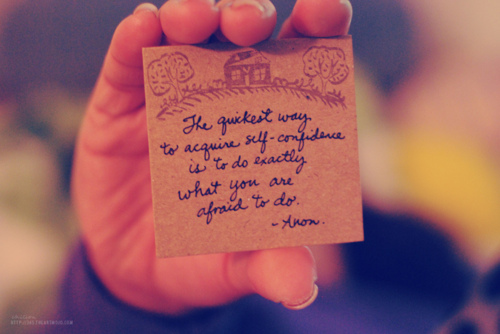 The quickest way
to acquire self-confidence
is to do exactly
what you are
afraid to do.
-Anon.